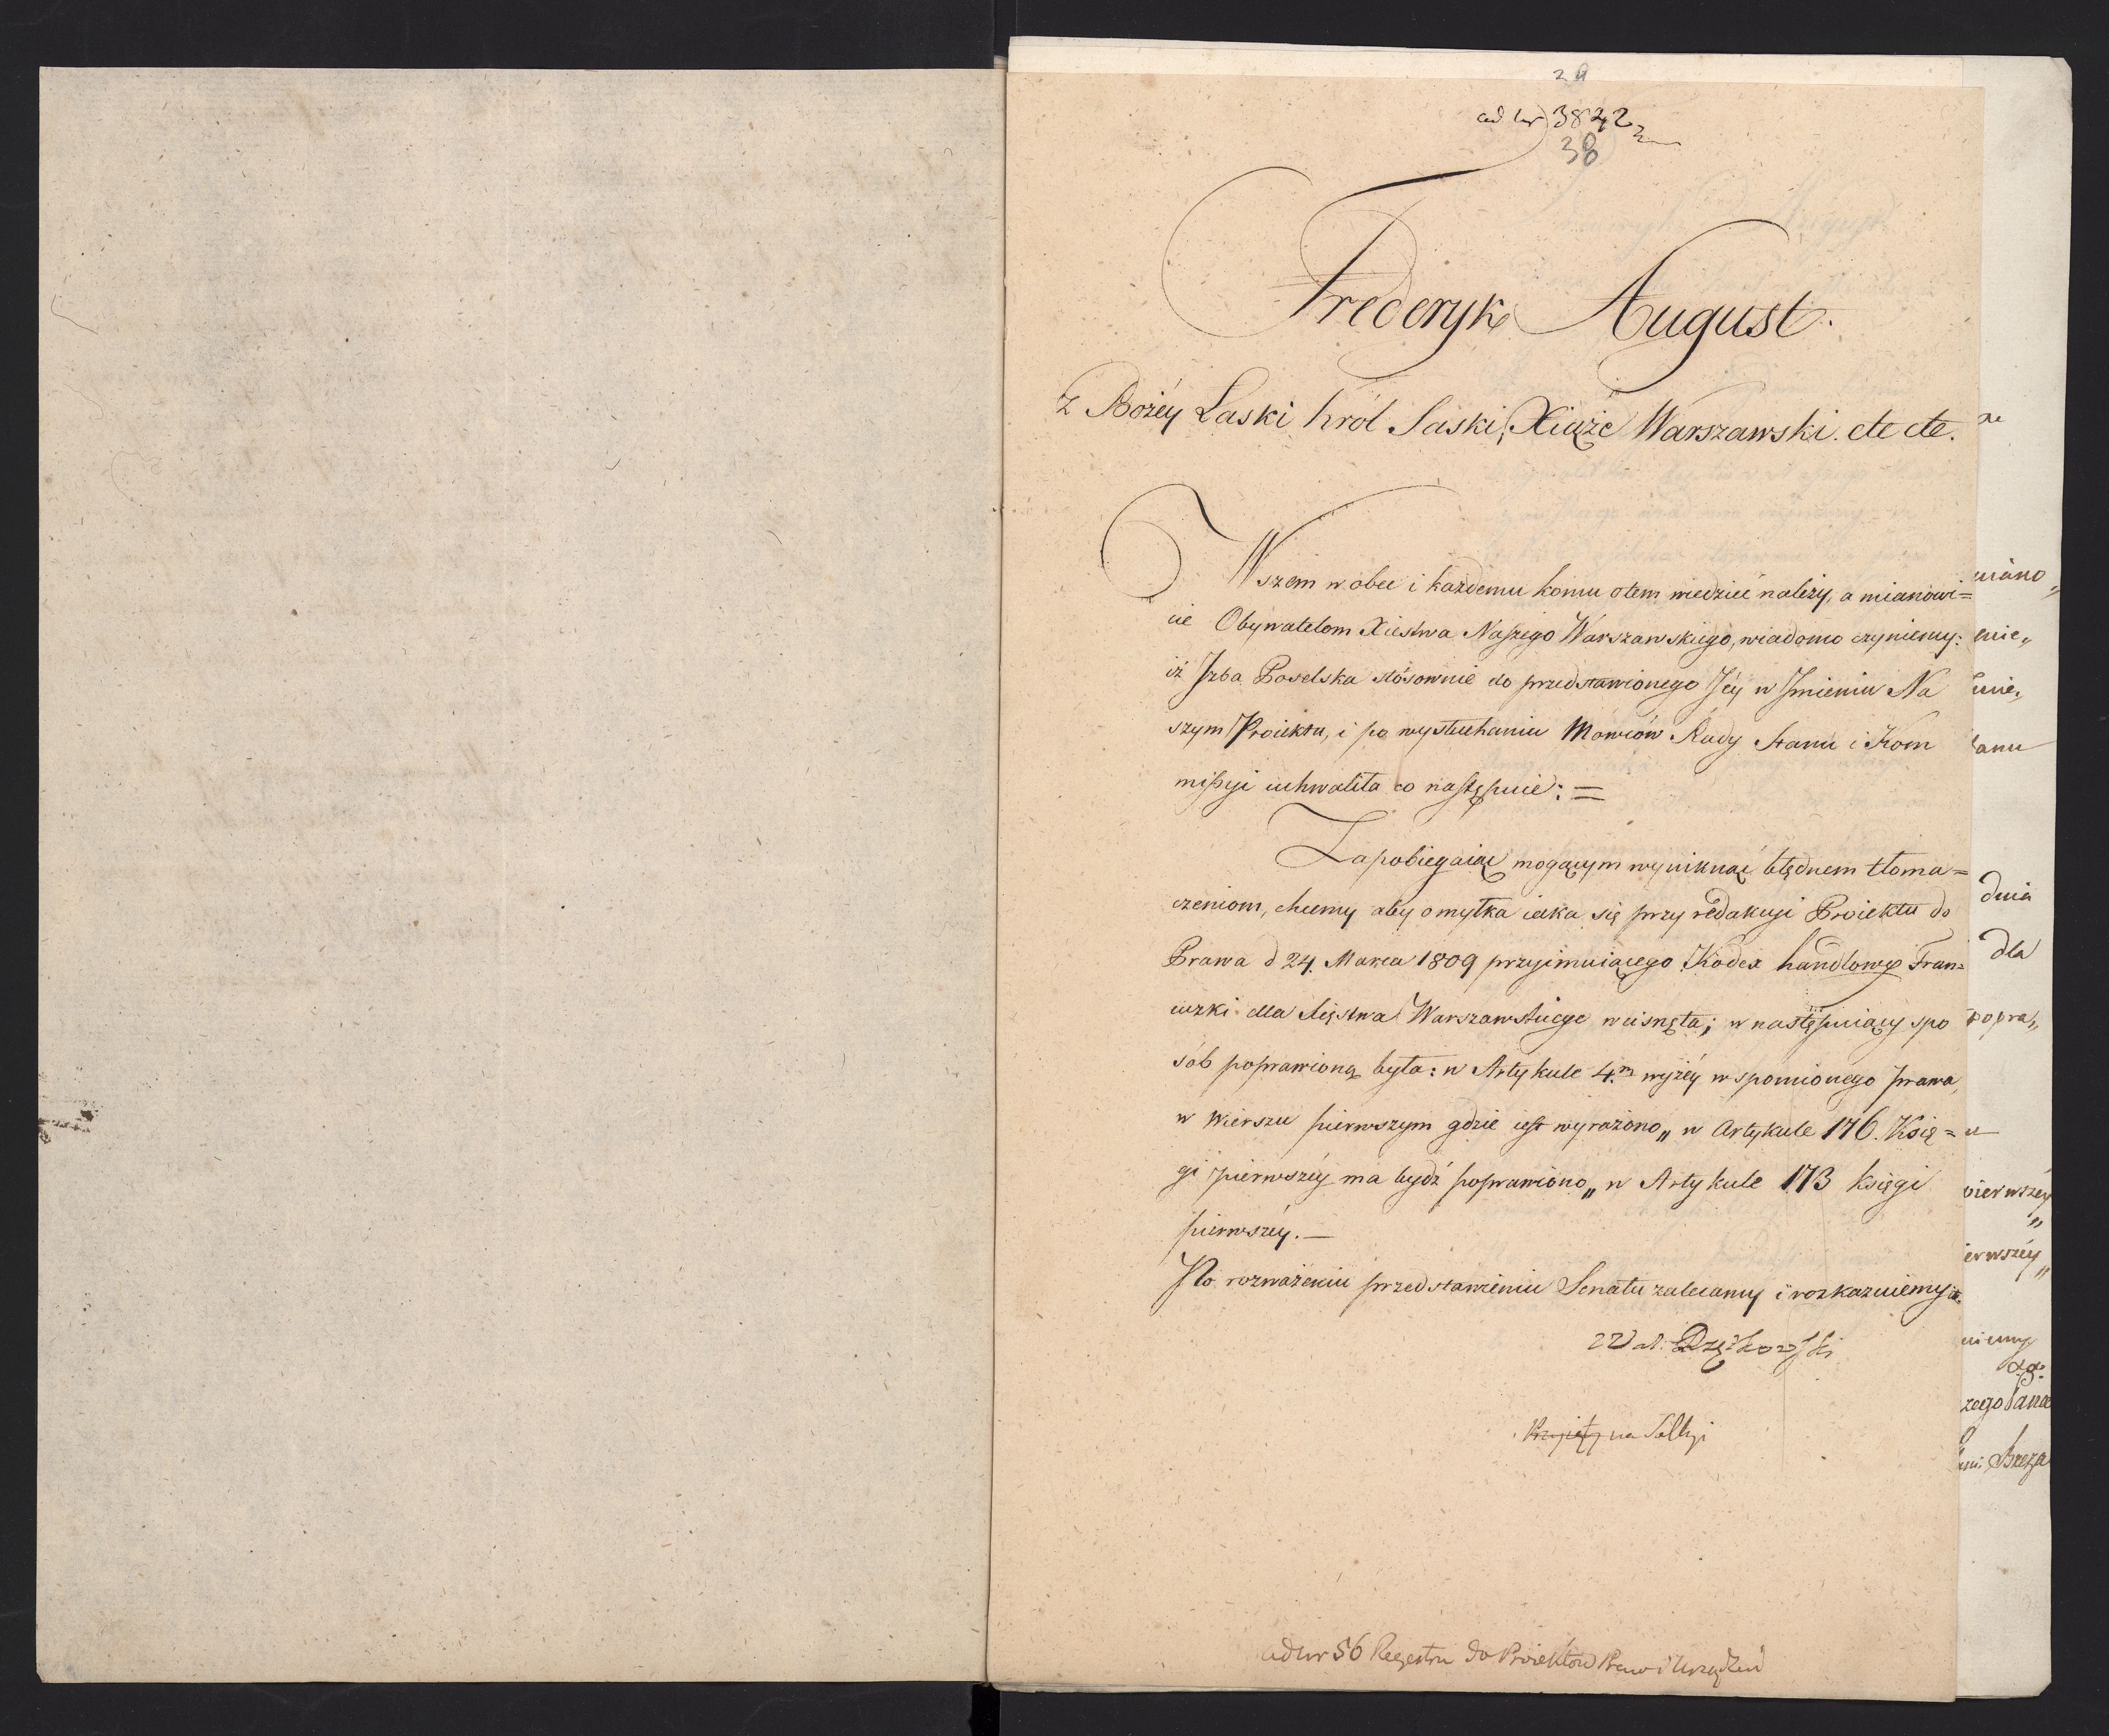 29
ad Nr 3842
38
Frederyk August.
z Bożéy Łaski Król Saski, Xiążę Warszawski. etc etc.
Wszem w obec i każdemu komu otem wiedzieć należy, a mianowi=
cie Obywatelom Xiestwa Naszego Warszawskiego, wiadomo czyniemy:
iż Izba Poselska stósownie do przedstawionego Jéy w Imieniu Na
szym Proiektu, i po wysłuchaniu Mówców Rady Stanu i Kom
missyi uchwaliła co następuie: =
Zapobiegaiąc mogącym wyniknąć błędnem tłoma=
czeniom, chcemy aby omyłka iaka się przy redakcyi Proiektu do
Prawa d 24. Marca 1809 przyimuiącego Kodex handlowy Fran=
cuzki dla Xięstwa Warszawskiego wcisnęła; w następuiący spo
sób poprawioną była: w Artykule 4.m wyżéy wspomionego prawa,
w wierszu pierwszym gdzie iest wyrażono „ w Artykule 176. Księ=
gi pierwszéy ma bydź poprawiono „ w Artykule 173 księgi
pierwszéy. —
Po rozważeniu przedstawieniu Senatu zalecamy i rozkazuiemy
Przyięty na Sessyi
ad Nr 56 Regestru do Proiektów Praw i Urządzeń
miano„
dnia
dla
popra„
pierwszéy
erwszéy„
Breza